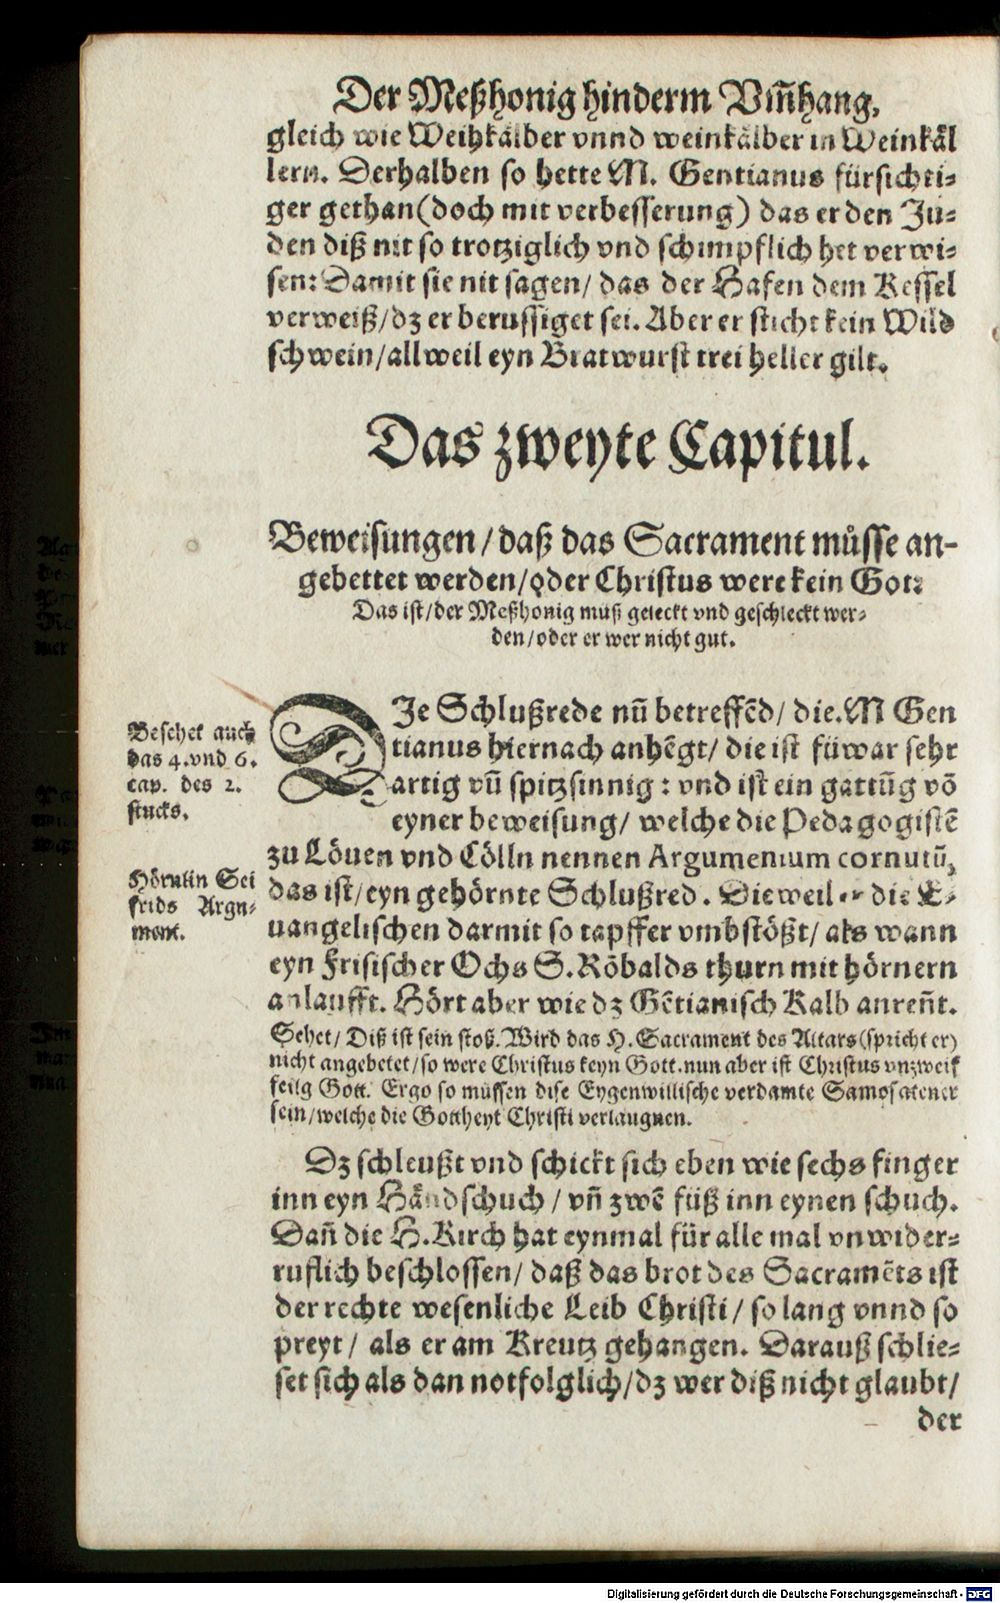 Der Meßhonig hinderm Vm̃hang,
gleich wie Weihkälber vnnd weinkälber in Weinkäl
lern. Derhalben so hette M. Gentianus fürsichti-
ger gethan (doch mit verbesserung) das er den Jü-
den diß nit so trotziglich vnd schimpflich het verwi-
sen: Damit sie nit sagen/ das der Hafen dem Kessel
verweiß/ dz er berussiget sei. Aber er sticht kein Wild
schwein/ allweil eyn Bratwurst trei heller gilt.
Das zweyte Capitul.
Beweisungen/ daß das Sacrament můsse an-
gebettet werden/ oder Christus were kein Gott
Das ist/ der Meßhonig muß geleckt vnd geschleckt wer-
den/ oder er wer nicht gut.
Beschet auch
das 4. vnd 6.
cap. des 2.
stucks.
DJe Schlußrede nũ betreffẽd/ die. M Gen
tianus hiernach anhẽgt/ die ist füwar sehr
artig vñ spitzsinnig: vnd ist ein gattũg võ
eyner beweisung/ welche die Pedagogistẽ
zu Löuen vnd Cölln nennen Argumentum cornutũ,
Hörnlin Sei
frids Argu-
ment.
das ist/ eyn gehörnte Schlußred. Dieweil er die E-
uangelischen darmit so tapffer vmbstößt/ als wann
eyn Frisischer Ochs S. Röbalds thurn mit hörnern
anlaufft. Hört aber wie dz Gẽtianisch Kalb anreñt.
Sehet/ Diß ist sein stoß. Wird das H. Sacrament des Altars (spricht er)
nicht angebetet/ so were Christus keyn Gott. nun aber ist Christus vnzweif
felig Gott. Ergo so müssen dise Eygenwillische verdamte Samosatener
sein/ welche die Gottheyt Christi verlaugnen.
Dz schleußt vnd schickt sich eben wie sechs finger
inn eyn Händschuch/ vñ zwẽ füß inn eynen schuch.
Dañ die H. Kirch hat eynmal für alle mal vnwider-
ruflich beschlossen/ daß das brot des Sacramẽts ist
der rechte wesenliche Leib Christi/ so lang vnnd so
preyt/ als er am Kreutz gehangen. Darauß schlie-
set sich als dan notfolglich/ dz wer diß nicht glaubt/
der
Digitalisierung gefördert durch die Deutsche Forschungsgemeinschaft - DFG